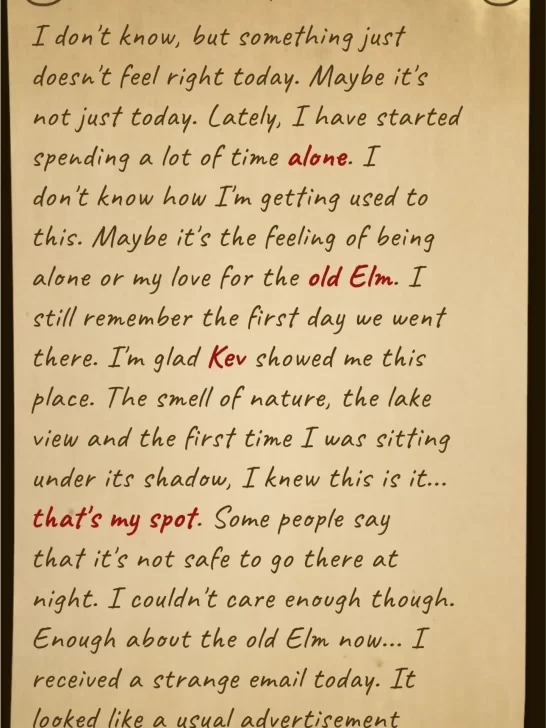 I don't know, but something just
doesn't feel right today. Maybe it's
not just today. Lately, I have started
spending a lot of time alone. I
don't know how I'm getting used to
this. Maybe it's the feeling of being
alone or my love for the old Elm. I
still remember the first day we went
there. I'm glad Kev showed me this
place. The smell of nature, the lake
view and the first time I was sitting
under its shadow, I knew this is it...
that's my spot. Some people say
that it's not safe to go there at
night. I couldn't care enough though.
Enough about the old Elm now... I
received a strange email today. It
looked like a usual advertisement